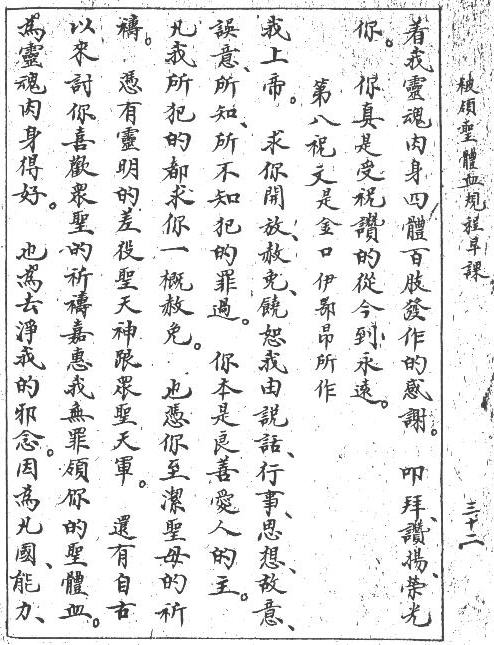 被領聖體血規程早課 三十二
着我靈魂肉身四體百肢發作的感謝。 叩拜、讚揚、榮光
你。 你真是受祝讚的從今到永遠。
第八祝文是金口伊鄂昂所作
我上帝。 求你開放、赦免、饒恕我由說話、行事、思想、故意、
誤意、所知、所不知犯的罪過。 你本是良善愛人的主。
凡我所犯的都求你一概赦免。 也憑你至潔聖母的祈
禱。 憑有靈明的差役聖天神跟眾聖天軍。 還有自古
以來討你喜歡眾聖的祈禱嘉惠我無罪領你的聖體血。
為靈魂肉身得好。 也為去淨我的邪念。因為凡國、能力、